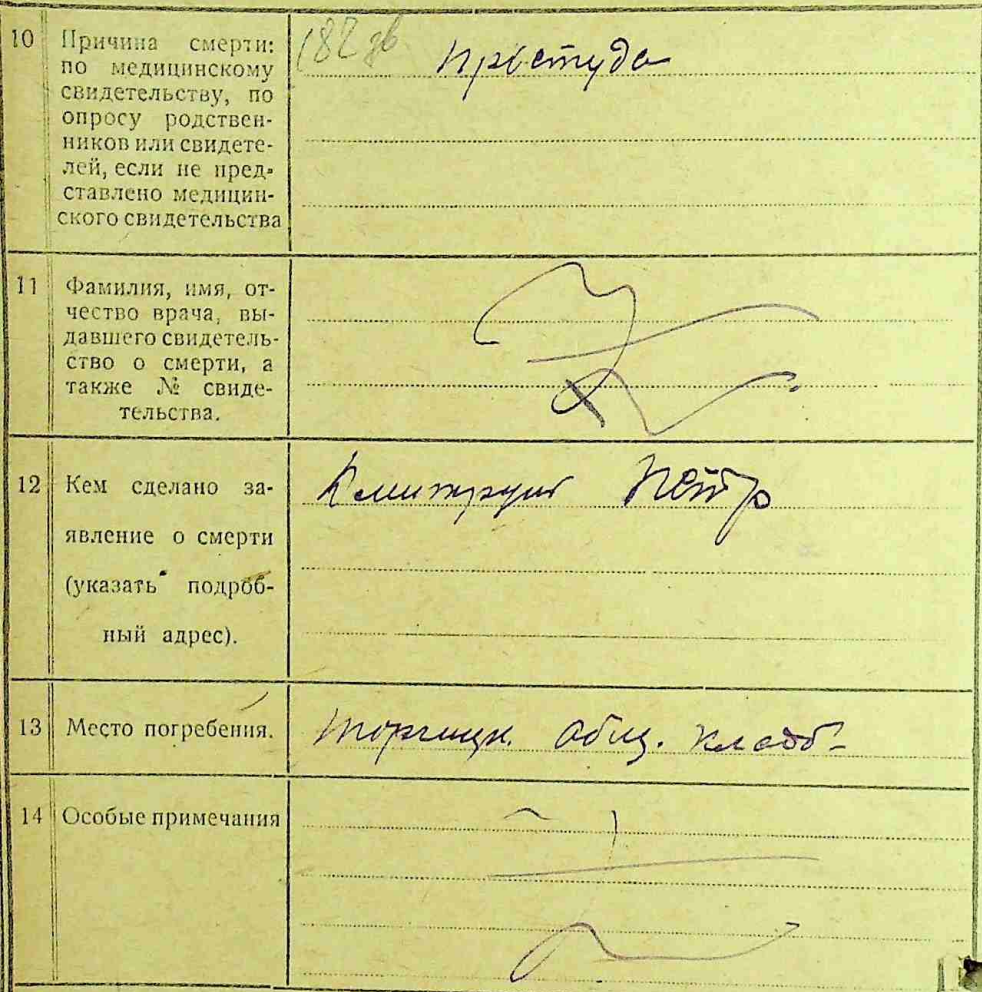 10 Причина смерти: по медицинскому свидетельству, по опросу родственников или свидетелей, если не представлено медицинского свидетельства
Простуда
11 Фамилия, имя, отчество врача, выдавшего свидетельство о смерти, а также № свидетельства.
12 Кем сделано заявление о смерти (указать подробный адрес).
Пётр
13 Место погребения.
Общ. кладб-
14 Особые примечания